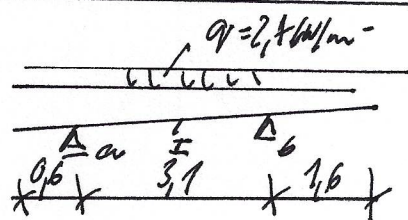 q=2,7kN/m
a I b
0,6 3,1 1,6